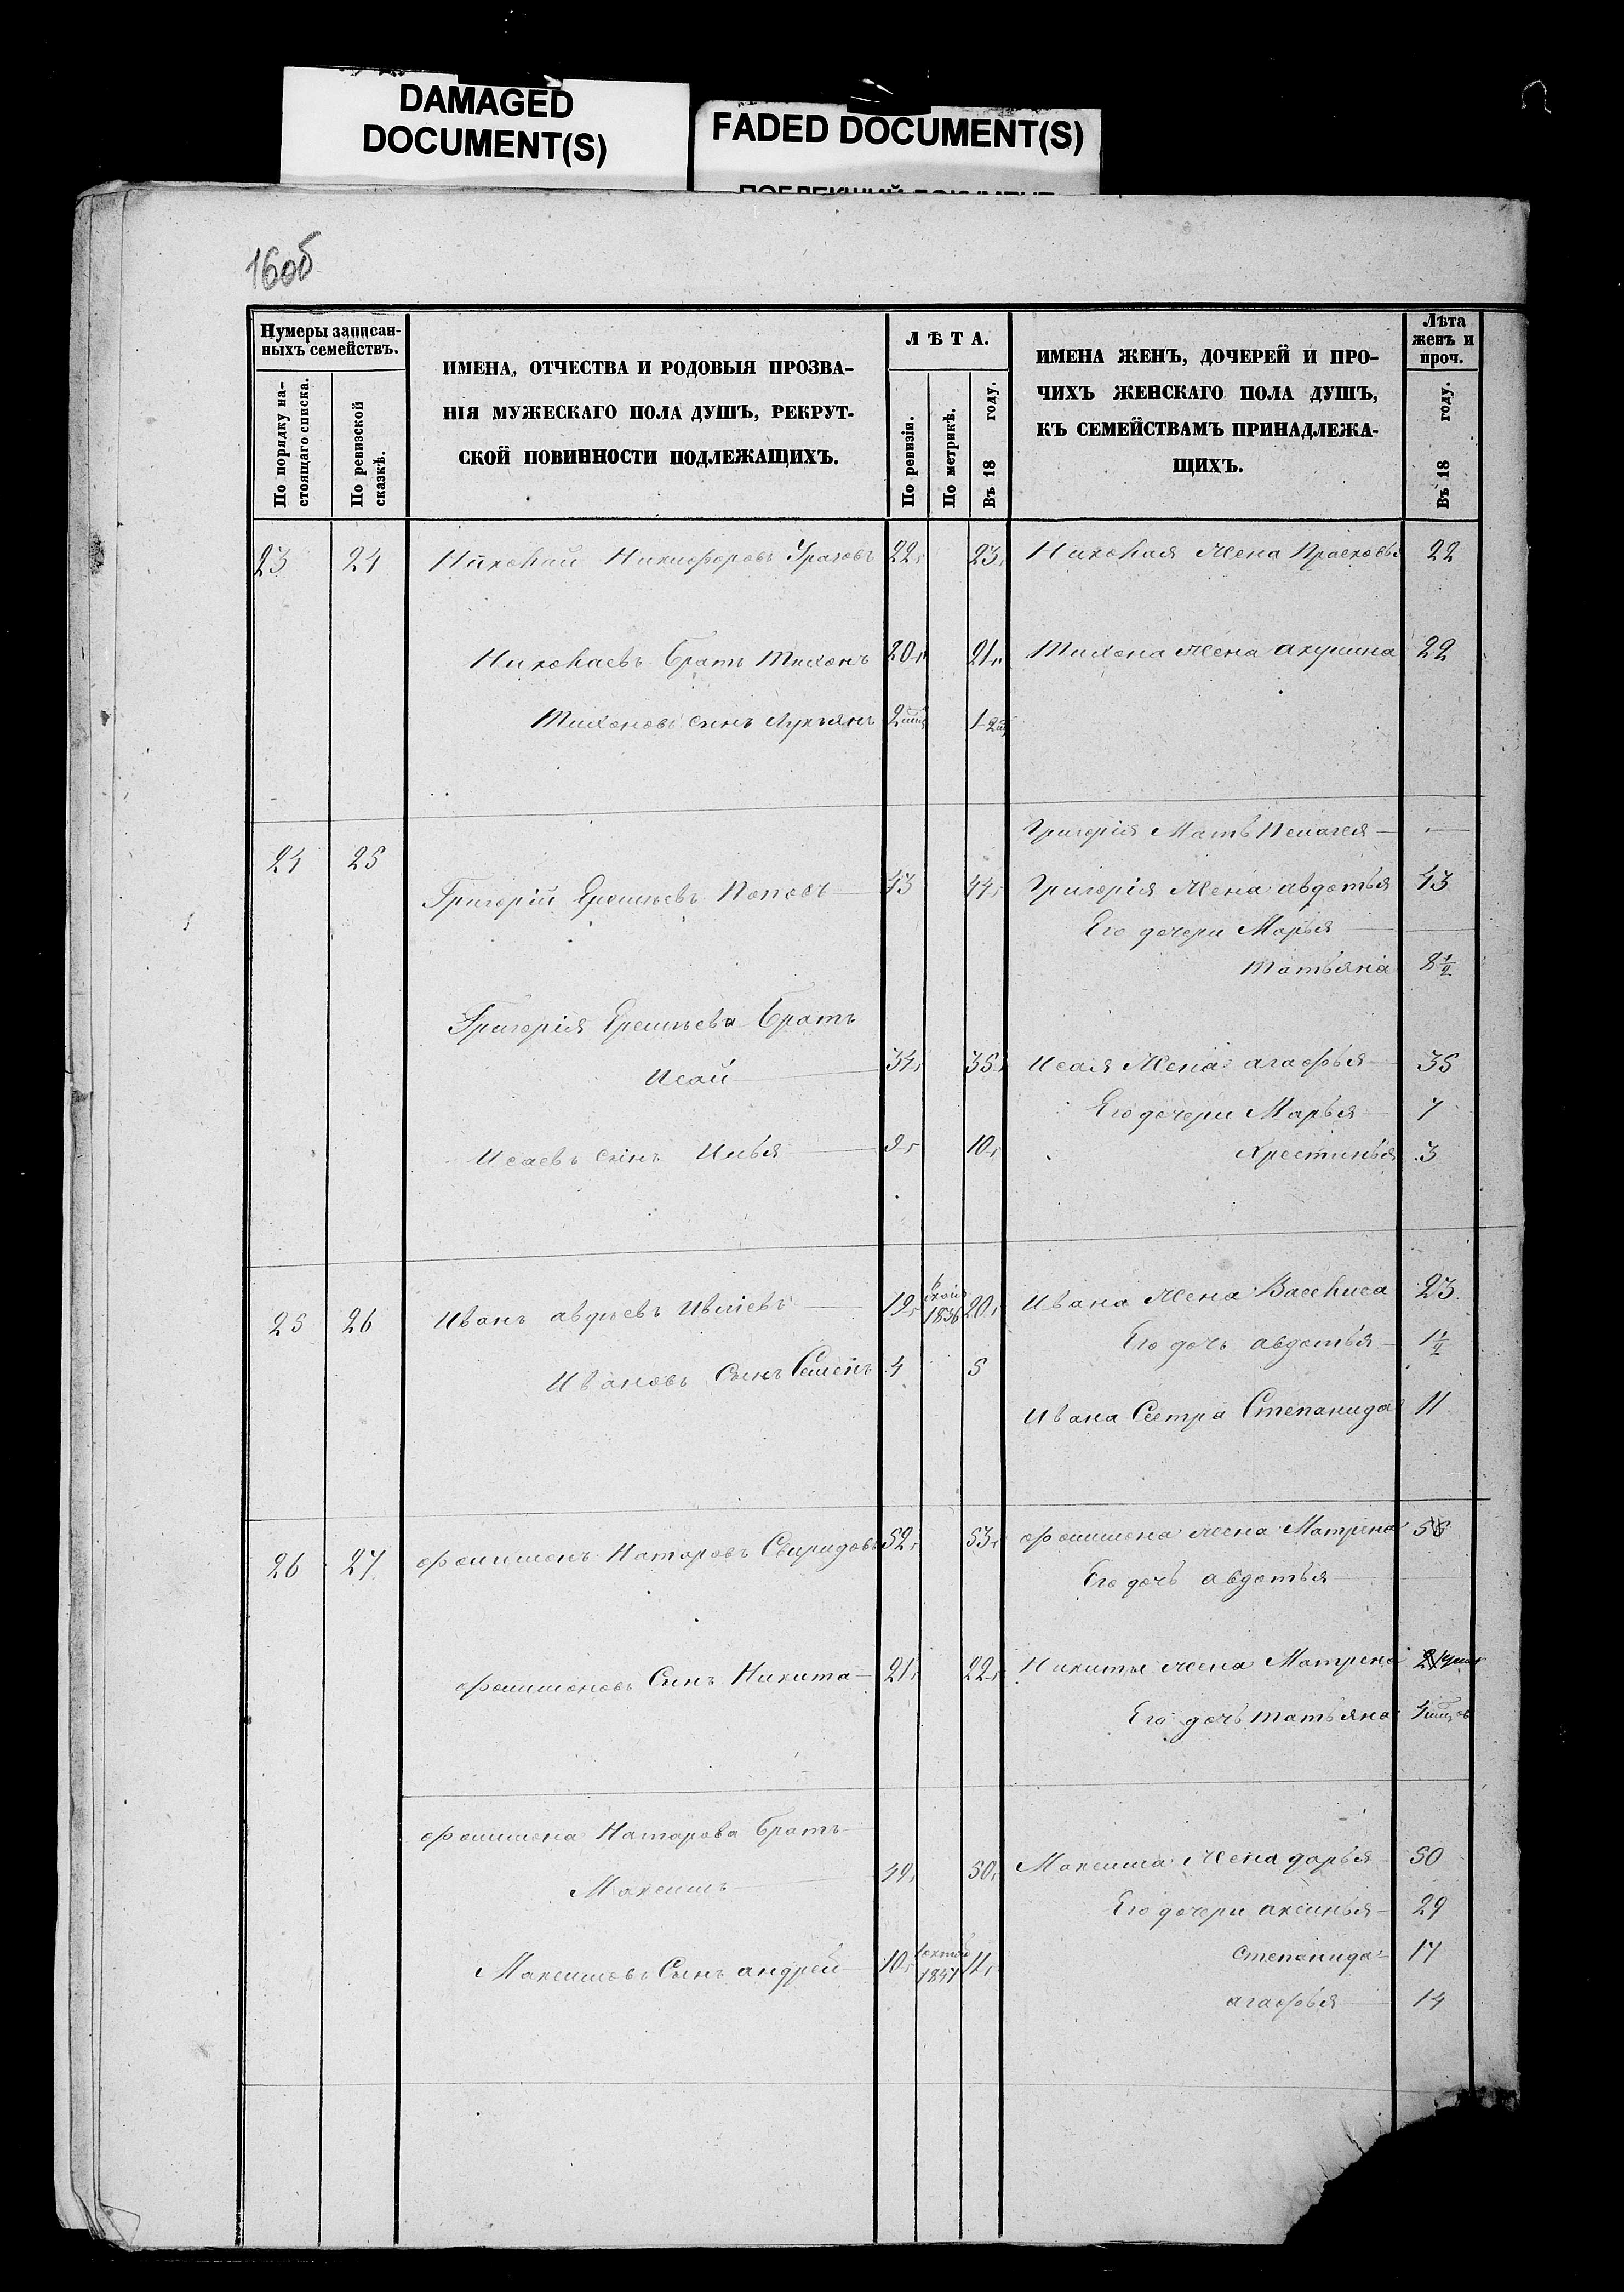 DAMAGED
DOCUMENT(S)
FADED DOCUMENT(S)
16об
Нумеры записан-
ныхъ семействъ.
По порядку на-
стоящаго списка.
По ревизской
сказкѣ.
ИМЕНА, ОТЧЕСТВА И РОДОВЫЯ ПРОЗВА-
НІЯ МУЖЕСКАГО ПОЛА ДУШЪ, РЕКРУТ-
СКОЙ ПОВИННОСТИ ПОДЛЕЖАЩИХЪ.
ЛѢТА.
По ревизіи.
По метрикѣ.
Въ 18 году.
ИМЕНА ЖЕНЪ, ДОЧЕРЕЙ И ПРО-
ЧИХЪ ЖЕНСКАГО ПОЛА ДУШЪ,
КЪ СЕМЕЙСТВАМЪ ПРИНАДЛЕЖА-
ЩИХЪ.
Лѣта
женъ и
проч.
Въ 18 году.
23 24 Николай Никифоровъ 22 23 Николая Жена Прасковья 22
Николаевъ братъ Тихонъ 20 21 Тихона Жена акулина 22
Тихоновъ сынъ Лукьянъ 2 1
Григорія Мать Пелагея —
24 25 Григорій Еремѣевъ Поповъ 43 44 Григорія Жена авдотья 43
Его дочери Марья —
Татьяна 8½
Григорія Еремѣева братъ
Исай 34 35 Исая Жена агафья 35
Его дочери Марья 7
Исаевъ сынъ Илья 9 10 Хрестинья 3
25 26 Иванъ авдѣевъ Ивлiевъ 19 1836 20 Ивана Жена Василиса 23
Его дочь авдотья 1½
Ивановъ Сынъ Семенъ 4 5
Ивана Сестра Степанида 11
26 27 Филимонъ Натаровъ Свиридовъ 52 53 Филимона жена Матрена
Его дочь авдотья —
Филимоновъ Сынъ Никита 21 22 Никиты жена Матрена
Его дочь татьяна
Филимона Натарова братъ
Максимъ 49 50 Максима Жена дарья 50
Его дочери аксинья 29
Максимовъ Сынъ андрей 10 11 Степанида 17
агафья 14